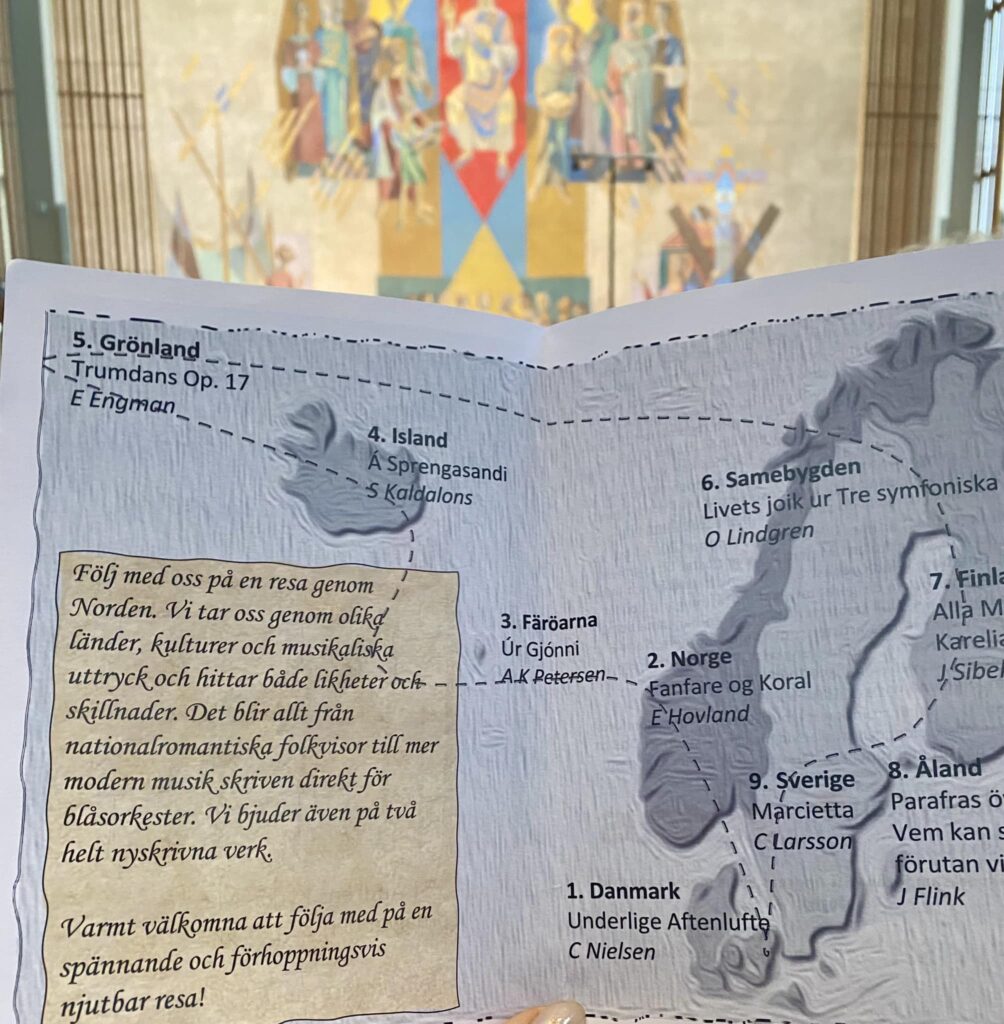 5. Grönland
Trumdans Op. 17
E Engman
4. Island
Á Sprengasandi
S Kaldalons
6. Samebygden
Livets joik ur Tre symfoniska
O Lindgren
Följ med oss på en resa genom
Norden. Vi tar oss genom olika
länder, kulturer och musikaliska
uttryck och hittar både likheter och
skillnader. Det blir allt från
nationalromantiska folkvisor till mer
modern musik skriven direkt för
blåsorkester. Vi bjuder även på två
helt nyskrivna verk.
Varmt välkomna att följa med på en
spännande och förhoppningsvis
njutbar resa!
3. Färöarna
Úr Gjónni
A-K Petersen
2. Norge
Fanfare og Koral
E Hovland
7.
Alla
J
9. Sverige
Marcietta
C Larsson
8. Åland
Parafras
Vem kan
förutan
J Flink
1. Danmark
Underlige Aftenlufte
C Nielsen